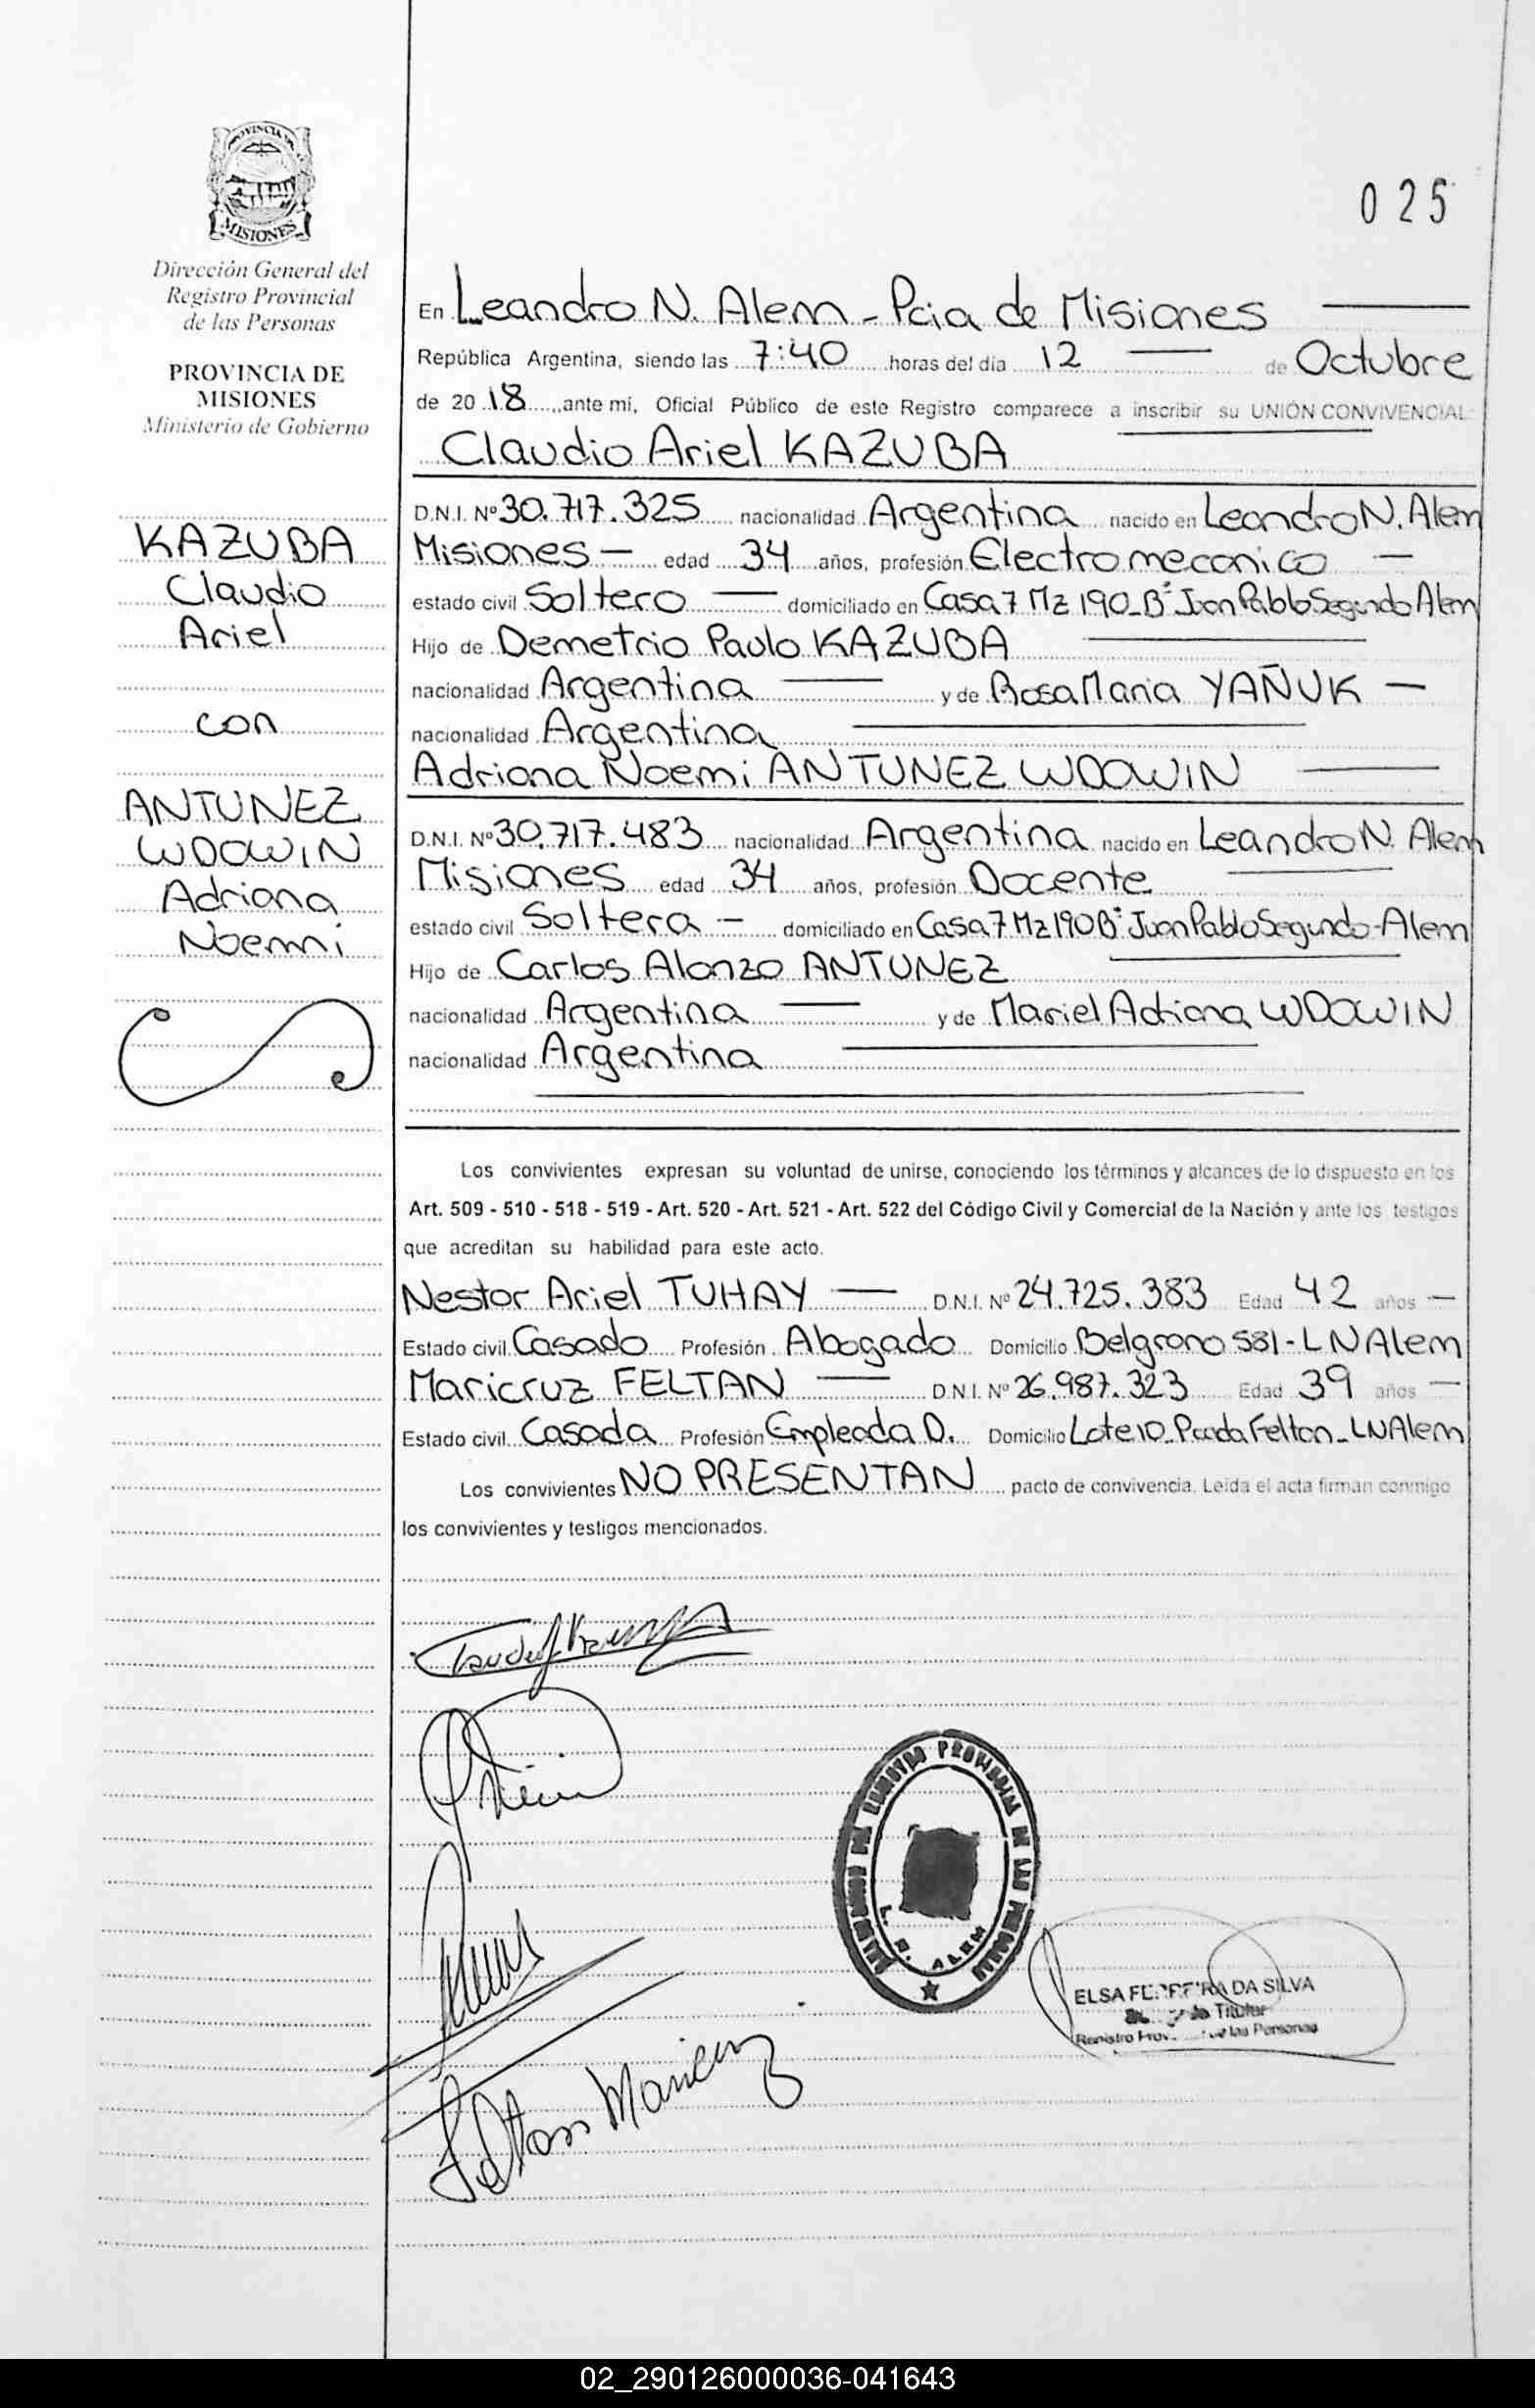 PROVINCIA DE
MISIONES
Dirección General del
Registro Provincial
de las Personas
PROVINCIA DE
MISIONES
Ministerio de Gobierno
KAZUBA
Claudio
Ariel
con
ANTUNEZ
WDOWIN
Adriana
Noemi
025
En Leandro N. Alem - Pcia de Misiones
República Argentina, siendo las 7:40 horas del día 12 de Octubre
de 2018, ante mí, Oficial Público de este Registro comparece a inscribir su UNIÓN CONVIVENCIAL
Claudio Ariel KAZUBA
D.N.I. Nº 30.717.325 nacionalidad Argentina nacido en Leandro N. Alem
Misiones — edad 34 años, profesión Electromecanico —
estado civil Soltero — domiciliado en Casa 7 Mz 190 - Bº Juan Pablo Segundo Alem
Hijo de Demetrio Paulo KAZUBA
nacionalidad Argentina — y de Rosa Maria YAÑUK —
nacionalidad Argentina
Adriana Noemi ANTUNEZ WDOWIN
D.N.I. Nº 30.717.483 nacionalidad Argentina nacido en Leandro N. Alem
Misiones edad 34 años, profesión Docente
estado civil Soltera — domiciliado en Casa 7 Mz 190 Bº Juan Pablo Segundo - Alem
Hijo de Carlos Alonzo ANTUNEZ
nacionalidad Argentina — y de Mariel Adriana WDOWIN
nacionalidad Argentina
Los convivientes expresan su voluntad de unirse, conociendo los términos y alcances de lo dispuesto en los
Art. 509 - 510 - 518 - 519 - Art. 520 - Art. 521 - Art. 522 del Código Civil y Comercial de la Nación y ante los testigos
que acreditan su habilidad para este acto.
Nestor Ariel TUHAY — D.N.I. Nº 24.725.383 Edad 42 años —
Estado civil Casado Profesión Abogado Domicilio Belgrano 581 - LN Alem
Maricruz FELTAN — D.N.I. Nº 26.987.323 Edad 39 años —
Estado civil Casada Profesión Empleada D. Domicilio Lote 10 - Parada Feltan - LN Alem
Los convivientes NO PRESENTAN pacto de convivencia. Leída el acta firman conmigo
los convivientes y testigos mencionados.
REGISTRO PROVINCIAL DE LAS PERSONAS
L. N. ALEM
ELSA FERREIRA DA SILVA
Titular
Registro de las Personas
Feltan Maricruz
02_290126000036-041643